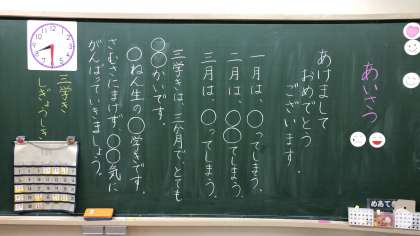 あいさつ
あけまして
おめでとう
ございます。
一月は、〇ってしまう。
二月は、〇〇てしまう。
三月は、〇ってしまう。
三学きは、三か月で、とても
〇〇かいです。
〇ねん生の〇学きです。
さむさにまけず、〇〇気に
がんばっていきましょう。
三学き
しぎょうしき
めあて